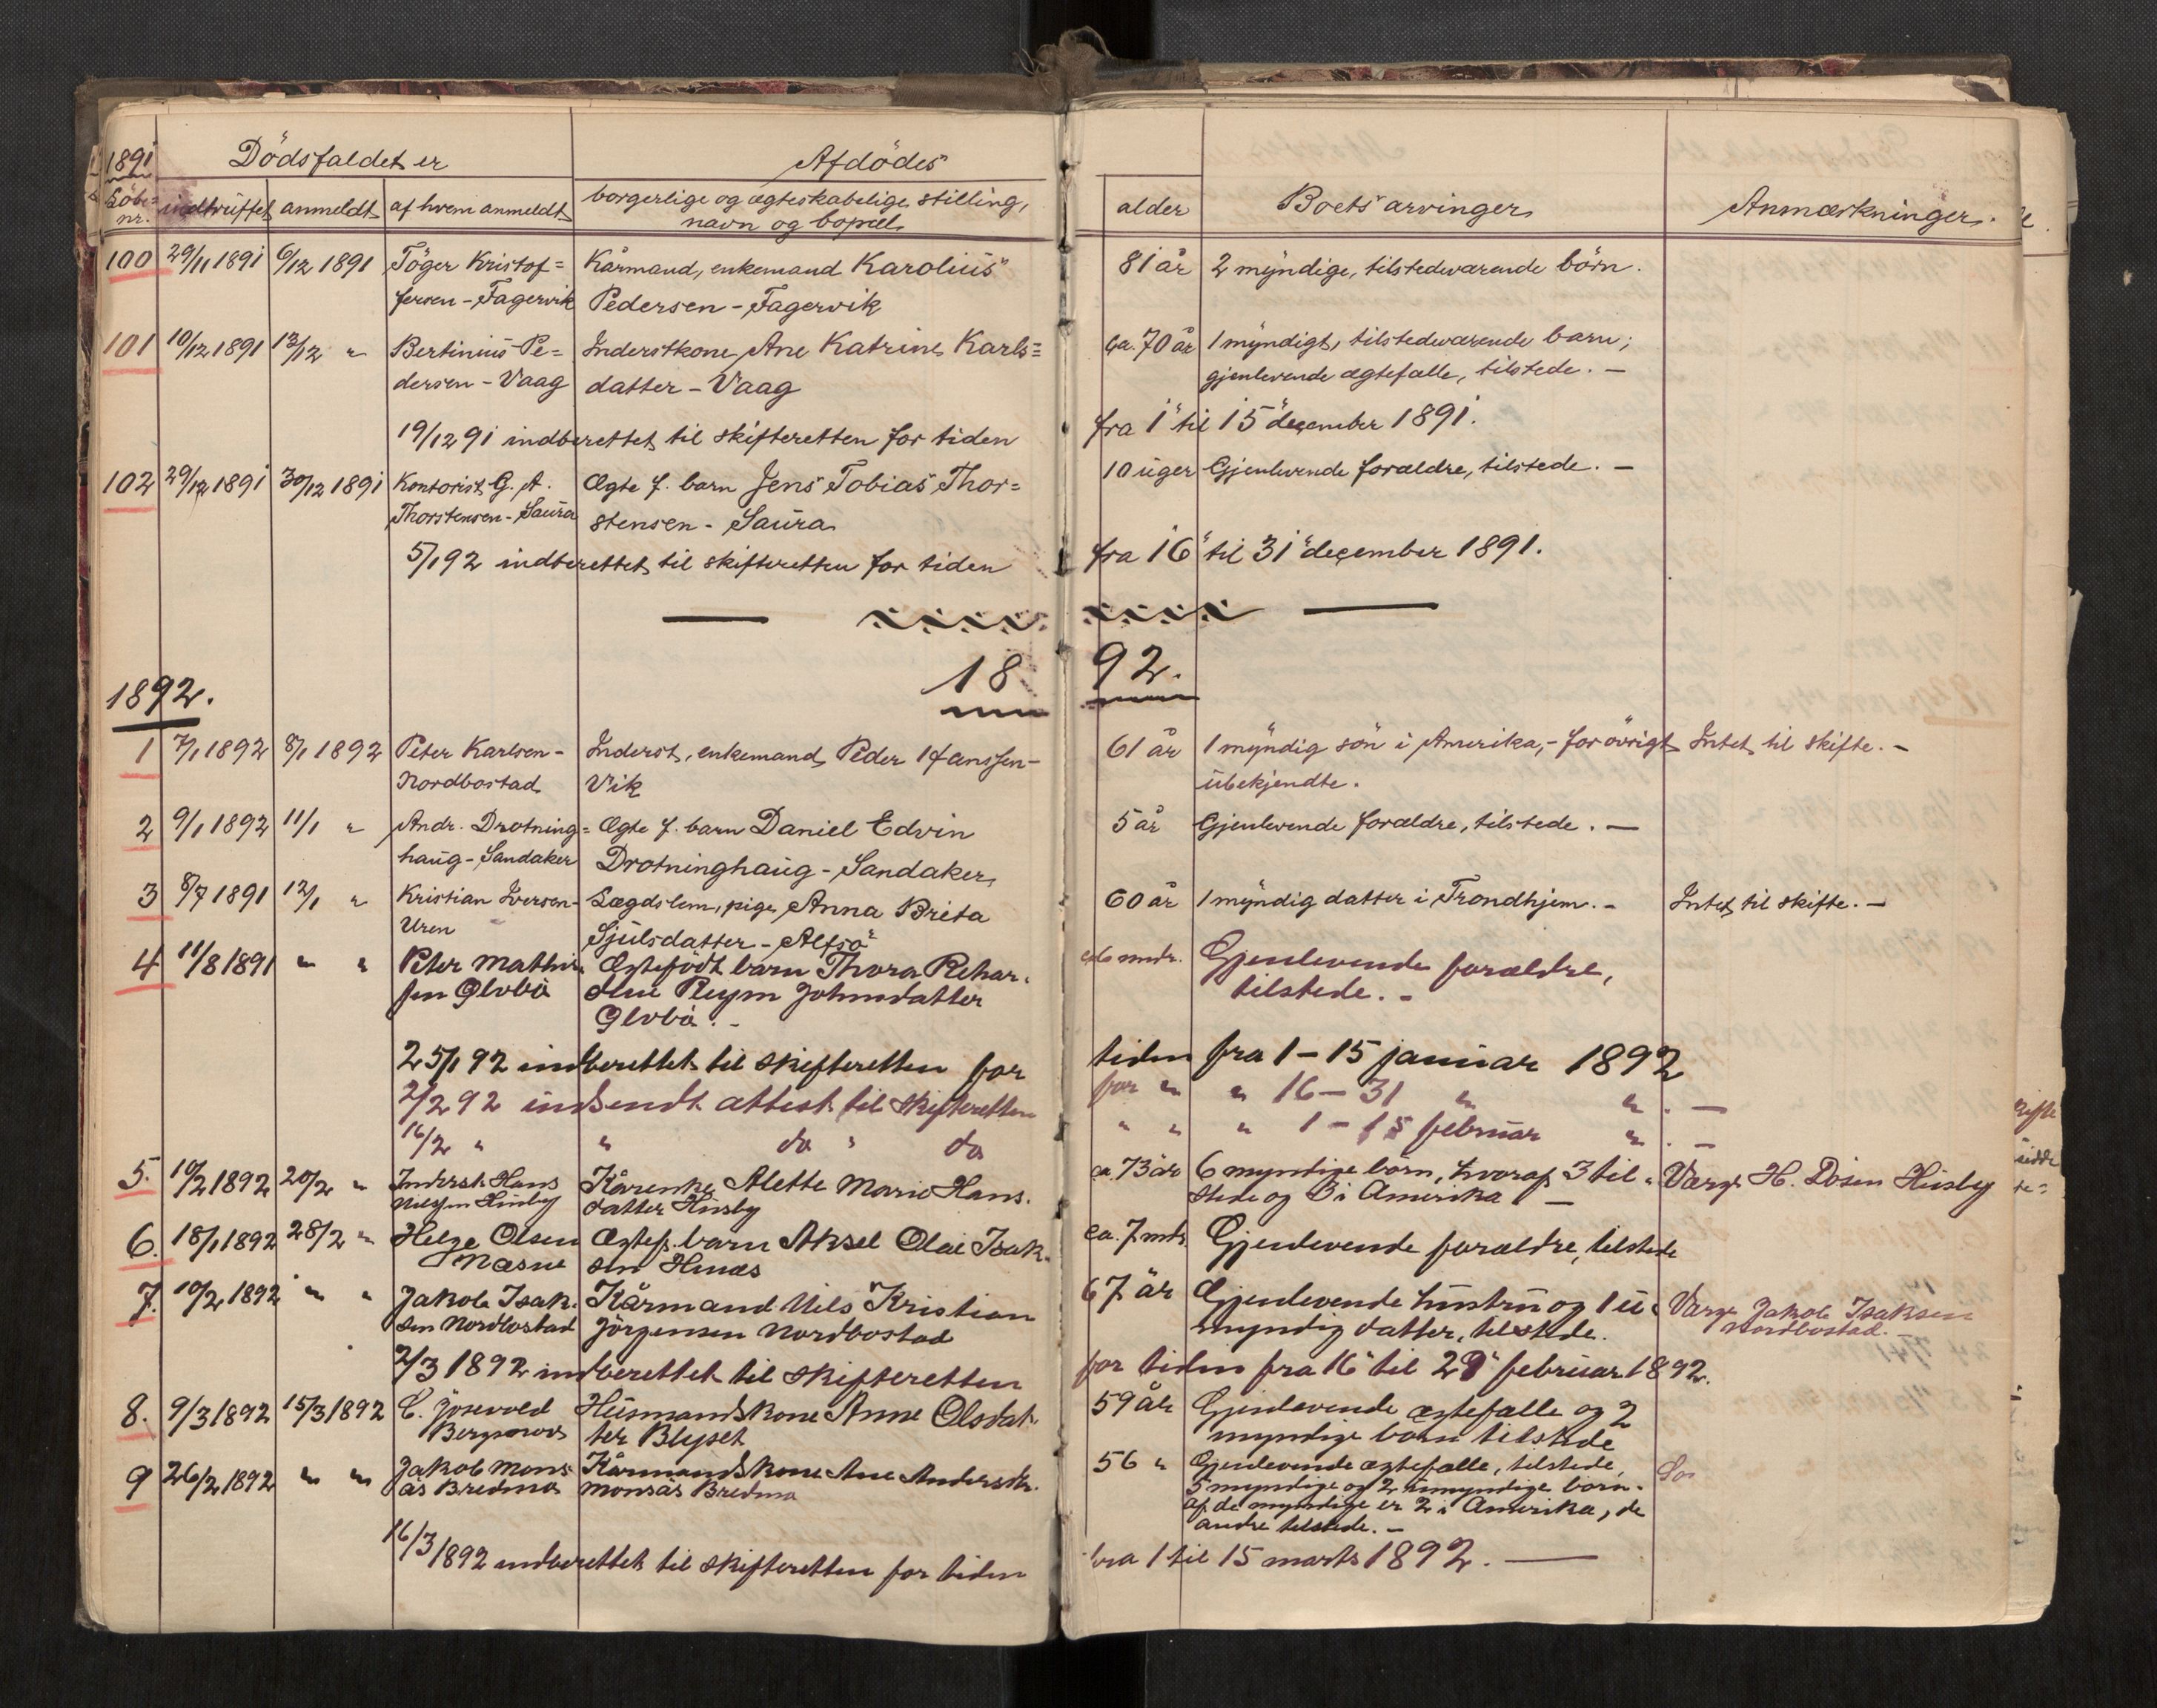 1891 Dödsfaldet er Afdödes
Löbe= nr. indtruffet anmeldt af hvem anmeldt borgerlige og ægteskabelige stilling, alder Boets arvinger Anmærkninger.
navn og bopæl.
100 29/11 1891 6/12 1891 Töger Kristof= Kårmand, enkemand Karolius 81 år 2 myndige, tilstedeværende börn.
fersen - Fagervik Pedersen - Fagervik
101 10/12 1891 13/12 " Bertinius Pe= Inderstkone Ane Katrine Karls= ca. 70 år 1 myndigt, tilstedeværende barn;
dersen - Vaag datter - Vaag gjenlevende ægtefælle, tilstede. -
19/12 91 indberettet til skifteretten for tiden fra 1 til 15 december 1891.
102 29/12 1891 30/12 1891 Kontorist G. A. Ægte f. barn Jens Tobias Thor= 10 uger Gjenlevende forældre, tilstede. -
Thorstensen - Saura stensen - Saura
5/1 92 indberettet til skifteretten for tiden fra 16 til 31 december 1891.
1892. 18 92.
1 7/1 1892 8/1 1892 Peter Karlsen - Inderst, enkemand Peder Hanssen - 61 år 1 myndig sön i Amerika, - forövrigt Intet til skifte. -
Nordbostad Vik ubekjendte.
2 9/1 1892 11/1 " Andr. Drotning= Ægte f. barn Daniel Edvin 5 år Gjenlevende forældre, tilstede. -
haug - Sandaker Drotninghaug - Sandaker
3 8/7 1891 12/1 " Kristian Iversen - Lægdslem, pige Anna Brita 60 år 1 myndig datter i Trondhjem. - Intet til skifte. -
Uren Sjulsdatter - Alfsö
4 11/8 1891 " " Peter Mathi Ægtefödt barn Thora Rehar. 6 mndr. Gjenlevende forældre,
sen Johnsdatter tilstede. -
25/1 92 indberettet til skifteretten for tiden fra 1 - 15 januar 1892
2/2 92 indsendt attest til skifteretten for " " 16 - 31 " " . -
16/2 " " do " do " " " 1 - 15 februar " . -
5. 10/2 1892 20/2 " Inderst Hans Kårenke Alette Marie Hans. ca. 73 år 6 myndige börn, hvoraf 3 til= Værge H. Husby
Husby datter Husby stede og 3 i Amerika -
6. 18/1 1892 28/2 " Helge Olsen Ægtef. barn Aksel Olai Isak. ca. 7 mdr Gjenlevende forældre, tilstede
Næsne sen
7. 10/2 1892 " " Jakob Isak. Kårmand Nils Kristian 67 år Gjenlevende hustru og 1 u= Værge Jakob Isaksen
sen Nordbostad Jörgensen Nordbostad myndig datter, tilstede. Nordbostad. -
2/3 1892 indberettet til skifteretten for tiden fra 16 til 29 februar 1892.
8. 9/3 1892 15/3 1892 C. Husmandskone Anne Olsdat= 59 år Gjenlevende ægtefælle og 2
ter myndige börn tilstede
9 26/2 1892 " " Jakob Mons Kårmandskone Ane Andersdr. 56 " Gjenlevende ægtefælle, tilstede,
ås Bredma Monsås Bredma 5 myndige og 2 umyndige börn.
af de myndige er 2 i Amerika, de
andre tilstede. -
16/3 1892 indberettet til skifteretten for tiden fra 1 til 15 marts 1892. -